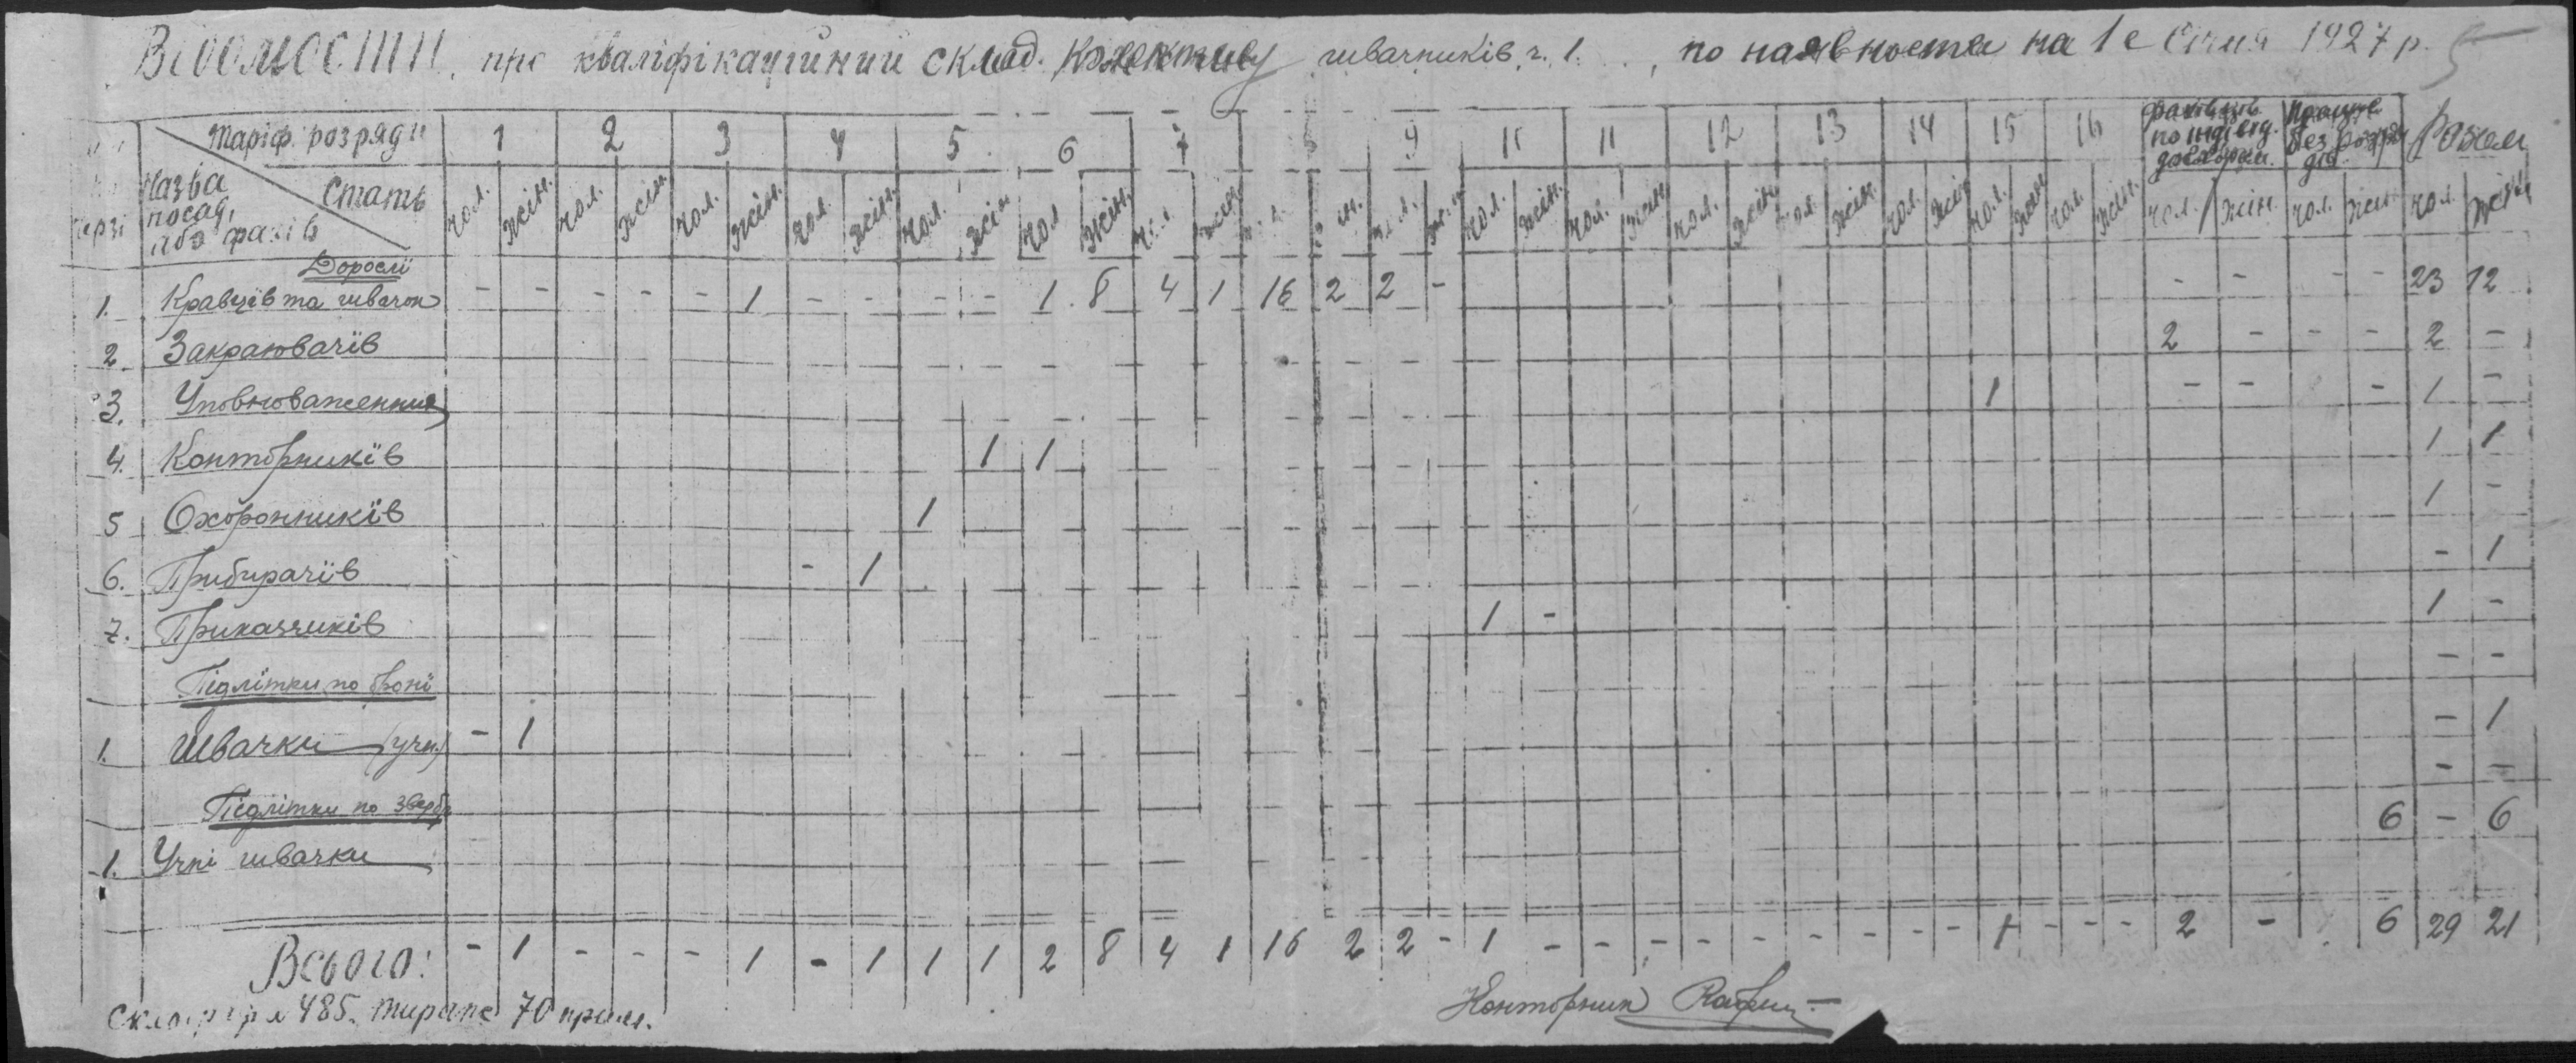 Відомости про кваліфікаційний склад Колективу швачників ч. 1. по наявности на 1е Січня 1927 р.
Таріф. розряди 1 2 3 4 5 6 7 8 9 10 11 12 13 14 15 16 фахівців по індівід. договорам. Працює без розрядів Разом
Назва посад, або фахів Стать чол. жін. чол. жін. чол. жін. чол. жін. чол. жін. чол. жін. чол. жін. чол. жін. чол. жін. чол. жін. чол. жін. чол. жін. чол. жін. чол. жін. чол. жін. чол. жін. чол. жін. чол. жін. чол. жін.
Дорослі
1. Кравців та швачок - - - - - 1 - - - - 1 8 4 1 16 2 2 - - - - - 23 12
2 Закраювачів 2 - - - 2 -
3. Уповноваженний 1 - - - 1 -
4. Конторників 1 1 1 1
5 Охоронників 1 1 -
6. Прибирачів - 1 - 1
7. Приказчиків 1 - 1 -
Підлітки по броні - -
1. Швачки (учн.) - 1 - 1
Підлітки по - -
1. Учні швачки 6 - 6
Всього: - 1 - - - 1 - 1 1 1 2 8 4 1 16 2 2 - 1 - - - - - - - - - 1 - - - 2 - 6 29 21
485. тираж 70 прим.
Конторник